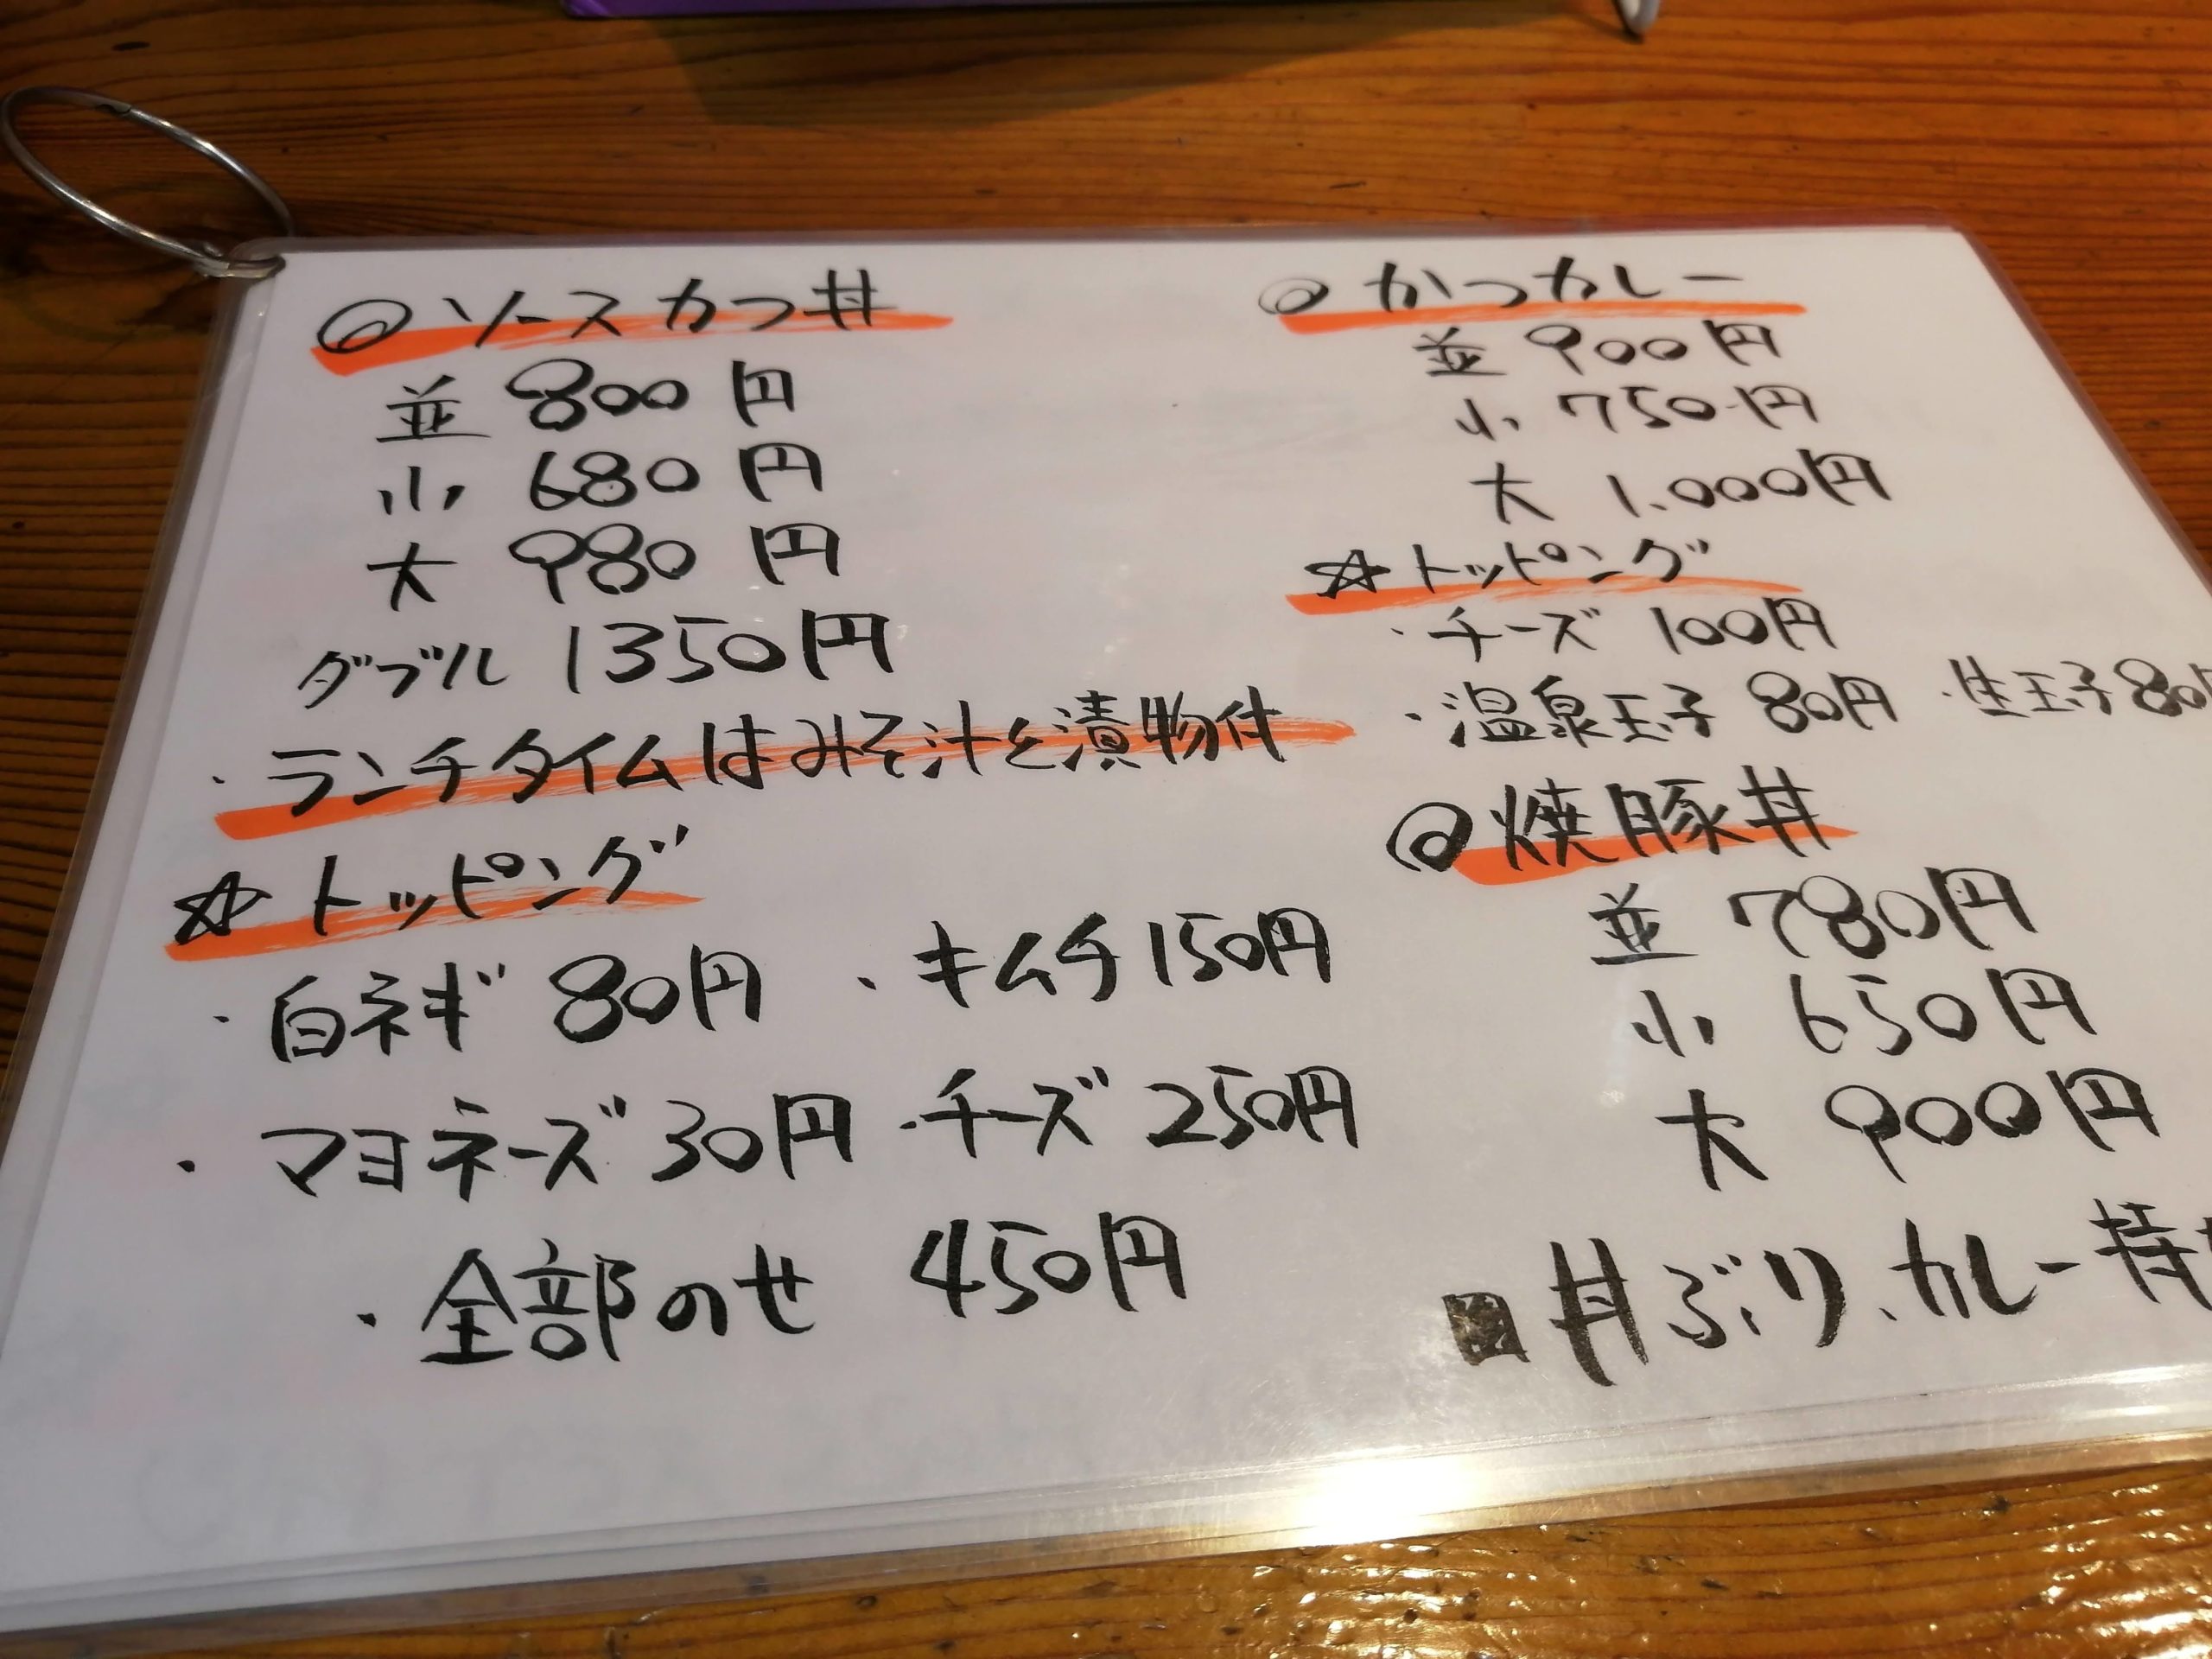 ◎ソースカツ丼
並 800円
小 680円
大 980円
ダブル 1350円
・ランチタイムはみそ汁と漬物付
☆トッピング
・白ネギ 80円 ・キムチ150円
・マヨネーズ 30円 ・チーズ 250円
・全部のせ 450円
◎かつカレー
並 900円
小 750円
大 1.000円
☆トッピング
・チーズ 100円
・温泉玉子 80円 ・生玉子80円
◎焼豚丼
並 780円
小 650円
大 900円
丼ぶり、カレー持